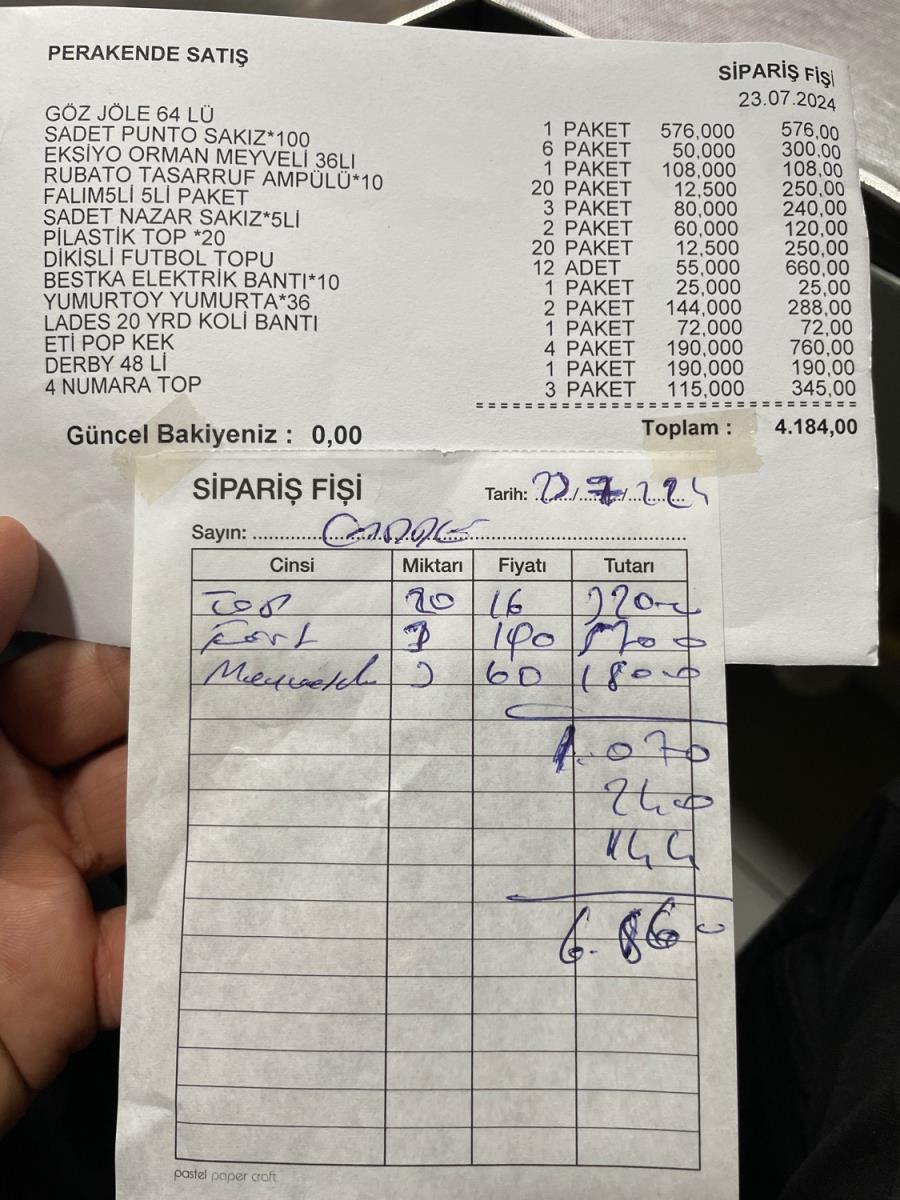 PERAKENDE SATIŞ
SİPARİŞ FİŞİ
23.07.2024
GÖZ JÖLE 64 LÜ 1 PAKET 576,000 576,00
SADET PUNTO SAKIZ*100 6 PAKET 50,000 300,00
EKSİYO ORMAN MEYVELİ 36LI 1 PAKET 108,000 108,00
RUBATO TASARRUF AMPÜLÜ*10 20 PAKET 12,500 250,00
FALIM5Lİ 5Lİ PAKET 3 PAKET 80,000 240,00
SADET NAZAR SAKIZ*5Lİ 2 PAKET 60,000 120,00
PİLASTİK TOP *20 20 PAKET 12,500 250,00
DİKİŞLİ FUTBOL TOPU 12 ADET 55,000 660,00
BESTKA ELEKTRİK BANTI*10 1 PAKET 25,000 25,00
YUMURTOY YUMURTA*36 2 PAKET 144,000 288,00
LADES 20 YRD KOLİ BANTI 1 PAKET 72,000 72,00
ETİ POP KEK 4 PAKET 190,000 760,00
DERBY 48 Lİ 1 PAKET 190,000 190,00
4 NUMARA TOP 3 PAKET 115,000 345,00
Güncel Bakiyeniz : 0,00 Toplam : 4.184,00
SİPARİŞ FİŞİ Tarih:
Sayın:
Cinsi Miktarı Fiyatı Tutarı
Top 20 16
190
60 1800
1.070
240
144
6.860
pastel paper craft